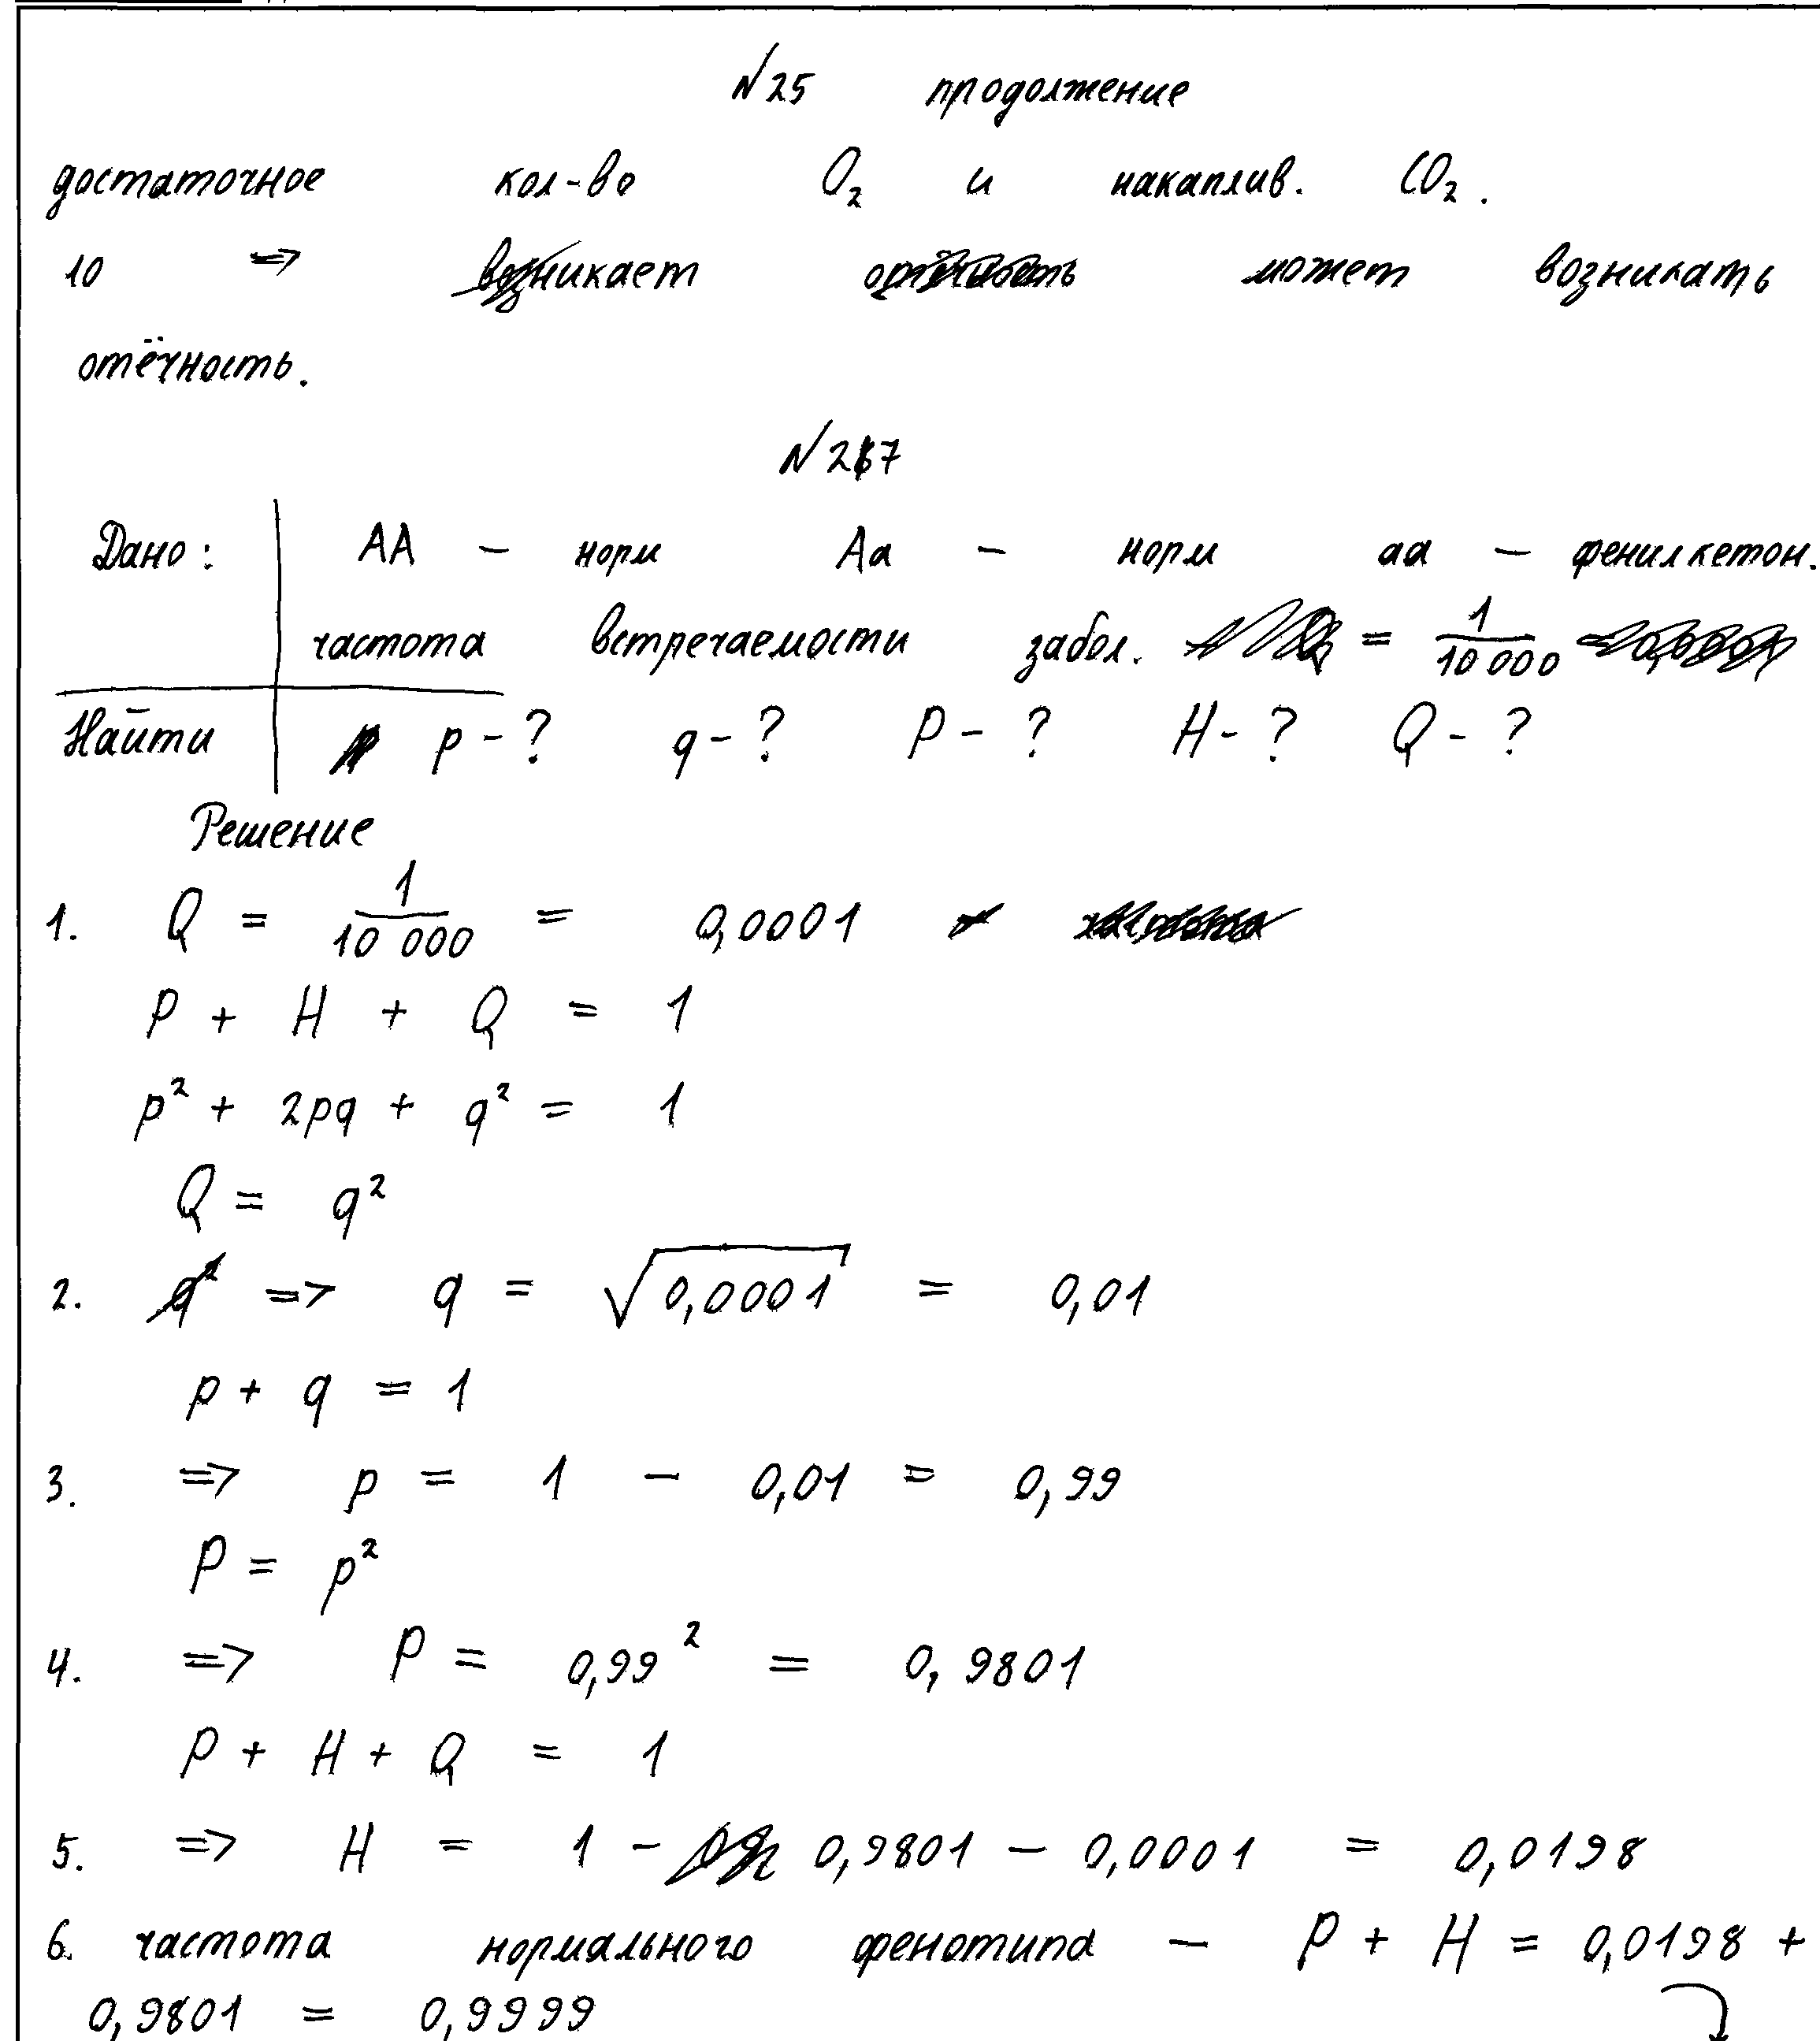 №25 продолжение
достаточное кол-во O₂ и накаплив. CO₂.
10 => может возникать
отёчность.
№27
Дано: AA – норм Aa – норм aa – фенилкетон.
частота встречаемости забол. = 1/10 000
Найти p - ? q - ? P - ? H - ? Q - ?
Решение
1. Q = 1/10 000 = 0,0001
P + H + Q = 1
p² + 2pq + q² = 1
Q = q²
2. => q = √0,0001 = 0,01
p + q = 1
3. => p = 1 – 0,01 = 0,99
P = p²
4. => P = 0,99² = 0,9801
P + H + Q = 1
5. => H = 1 - 0,9801 – 0,0001 = 0,0198
6. частота нормального фенотипа – P + H = 0,0198 +
0,9801 = 0,9999